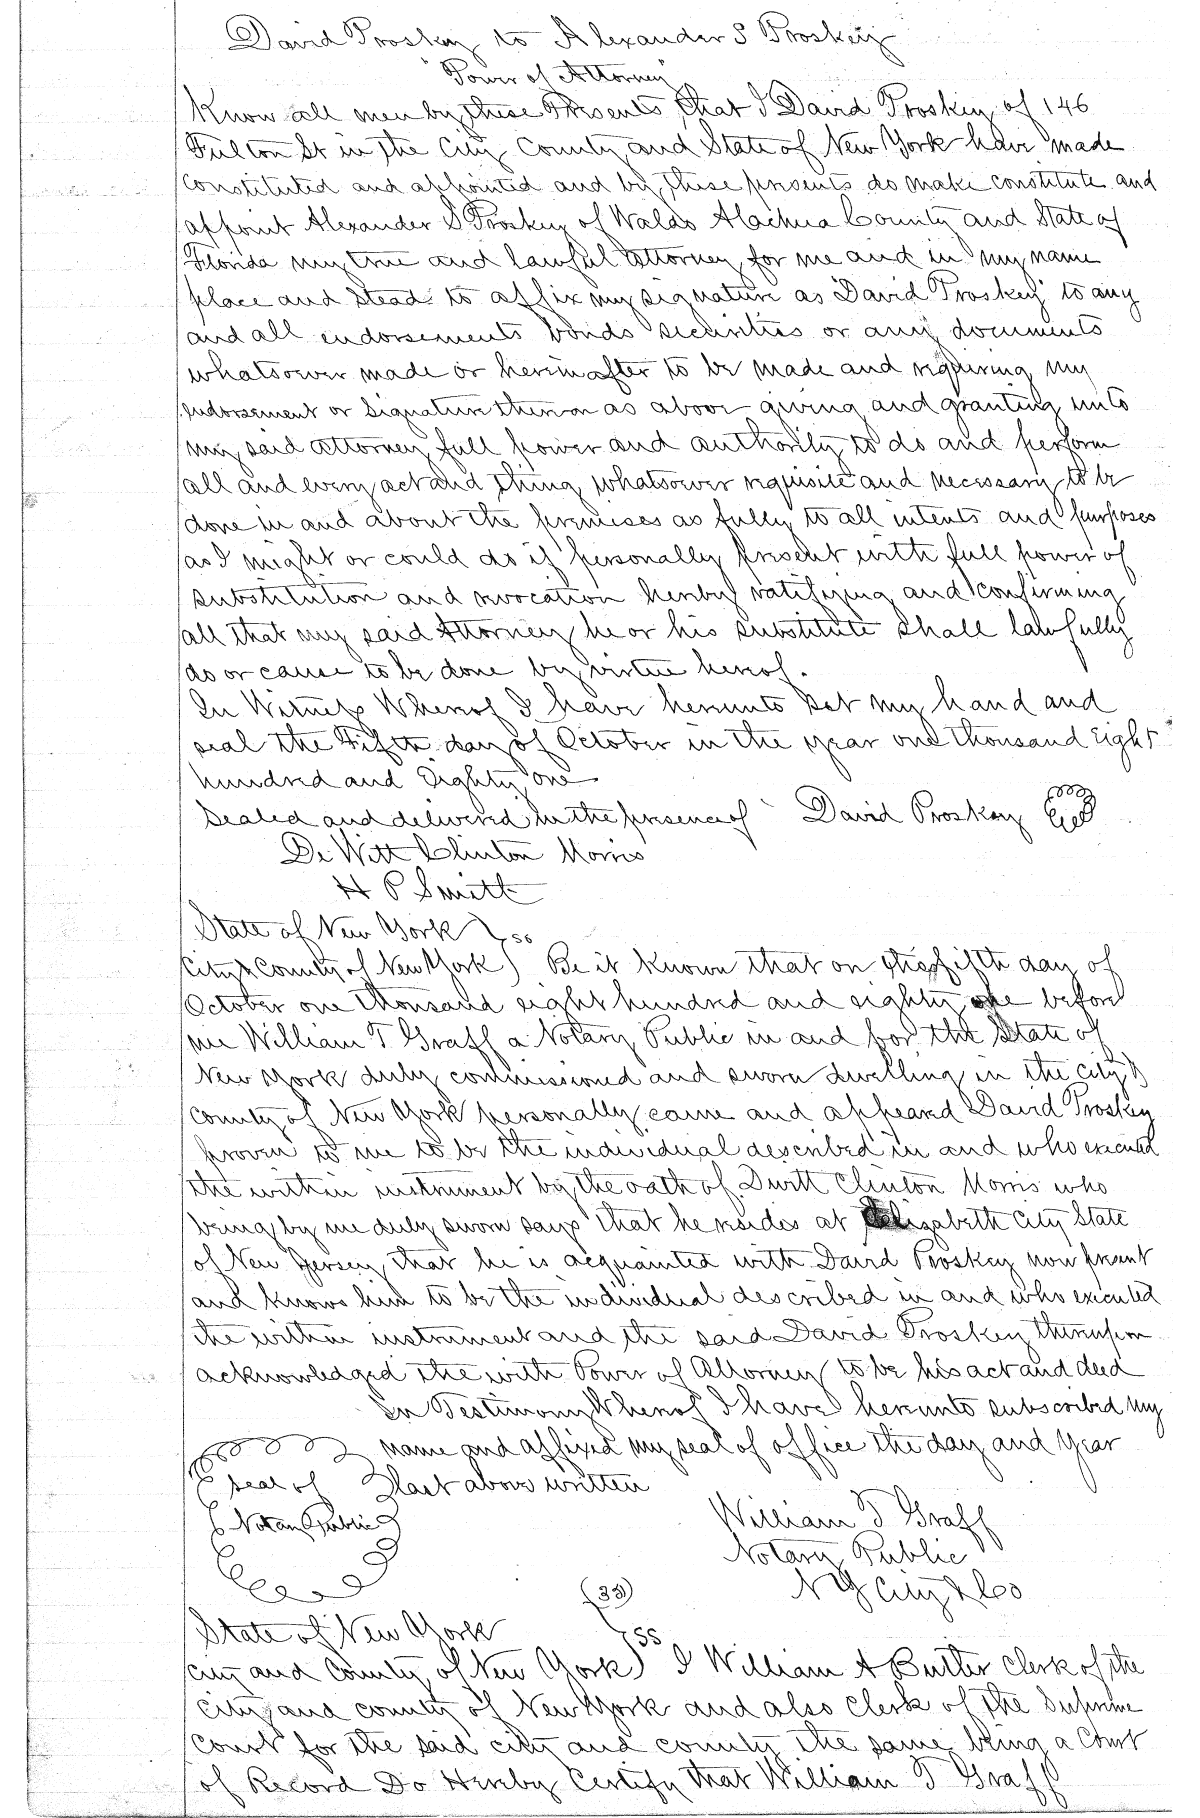 David Proskey to Alexander S Proskey
"Power of Attorney"
Know all men by these Presents that I David Proskey of 146
Fulton St in the City County and State of New York have made
constituted and appointed and by these presents do make constitute and
appoint Alexander S Proskey of Waldo Alachua County and State of
Florida my true and lawful Attorney for me and in my name
place and stead to affix my signature as "David Proskey" to any
and all endorsements bonds securities or any documents
whatsoever made or hereinafter to be made and requiring my
endorsement or signature thereon as above giving and granting unto
my said attorney full power and authority to do and perform
all and every act and thing whatsoever requisite and necessary to be
done in and about the premises as fully to all intents and purposes
as I might or could do if personally present with full power of
substitution and revocation hereby ratifying and confirming
all that my said Attorney he or his substitute shall lawfully
do or cause to be done by virtue hereof.
In Witness Whereof I have hereunto set my hand and
seal the Fifth day of October in the year one thousand Eight
hundred and Eighty one
Sealed and delivered in the presence of David Proskey Seal
De Witt Clinton Morris
H P Smith
State of New York } ss
City & County of New York) Be it known that on the fifth day of
October one thousand eight hundred and eighty one before
me William T Graff a Notary Public in and for the State of
New York duly commissioned and sworn dwelling in the city &
county of New York personally came and appeared David Proskey
proven to me to be the individual described in and who executed
the within instrument by the oath of Dwitt Clinton Morris who
being by me duly sworn says that he resides at Elizabeth City State
of New Jersey that he is acquainted with David Proskey now present
and knows him to be the individual described in and who executed
the within instrument and the said David Proskey thereupon
acknowledged the with Power of Attorney to be his act and deed
In Testimony Whereof I have hereunto subscribed my
name and affixed my seal of office the day and year
seal of last above written
Notary Public
William T Graff
Notary Public
N Y City & Co
(33)
State of New York
City and County of New York } ss I William A Butler Clerk of the
City and county of New York and also Clerk of the Supreme
Court for the said city and county the same being a Court
of Record Do Hereby Certify that William T Graff